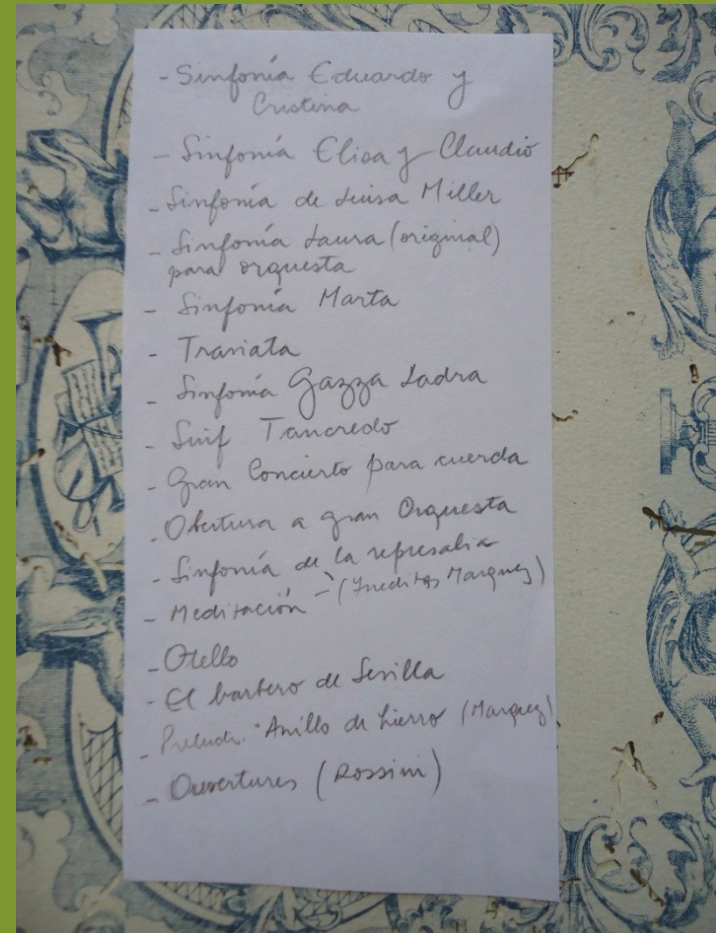 - Sinfonía Eduardo y
Cristina
- Sinfonía Elisa y Claudio
- Sinfonía de Luisa Miller
- Sinfonía Laura (original)
para orquesta
- Sinfonía Marta
- Traviata
- Sinfonía Gazza Ladra
- Sinf Tancredo
- Gran Concierto para cuerda
- Obertura a gran Orquesta
- Sinfonía de la represalia
- Meditación -> (Ineditas Marquez)
- Otello
- El barbero de Sevilla
- Preludio "Anillo de hierro (Marquez)
- Ouvertures (Rossini)